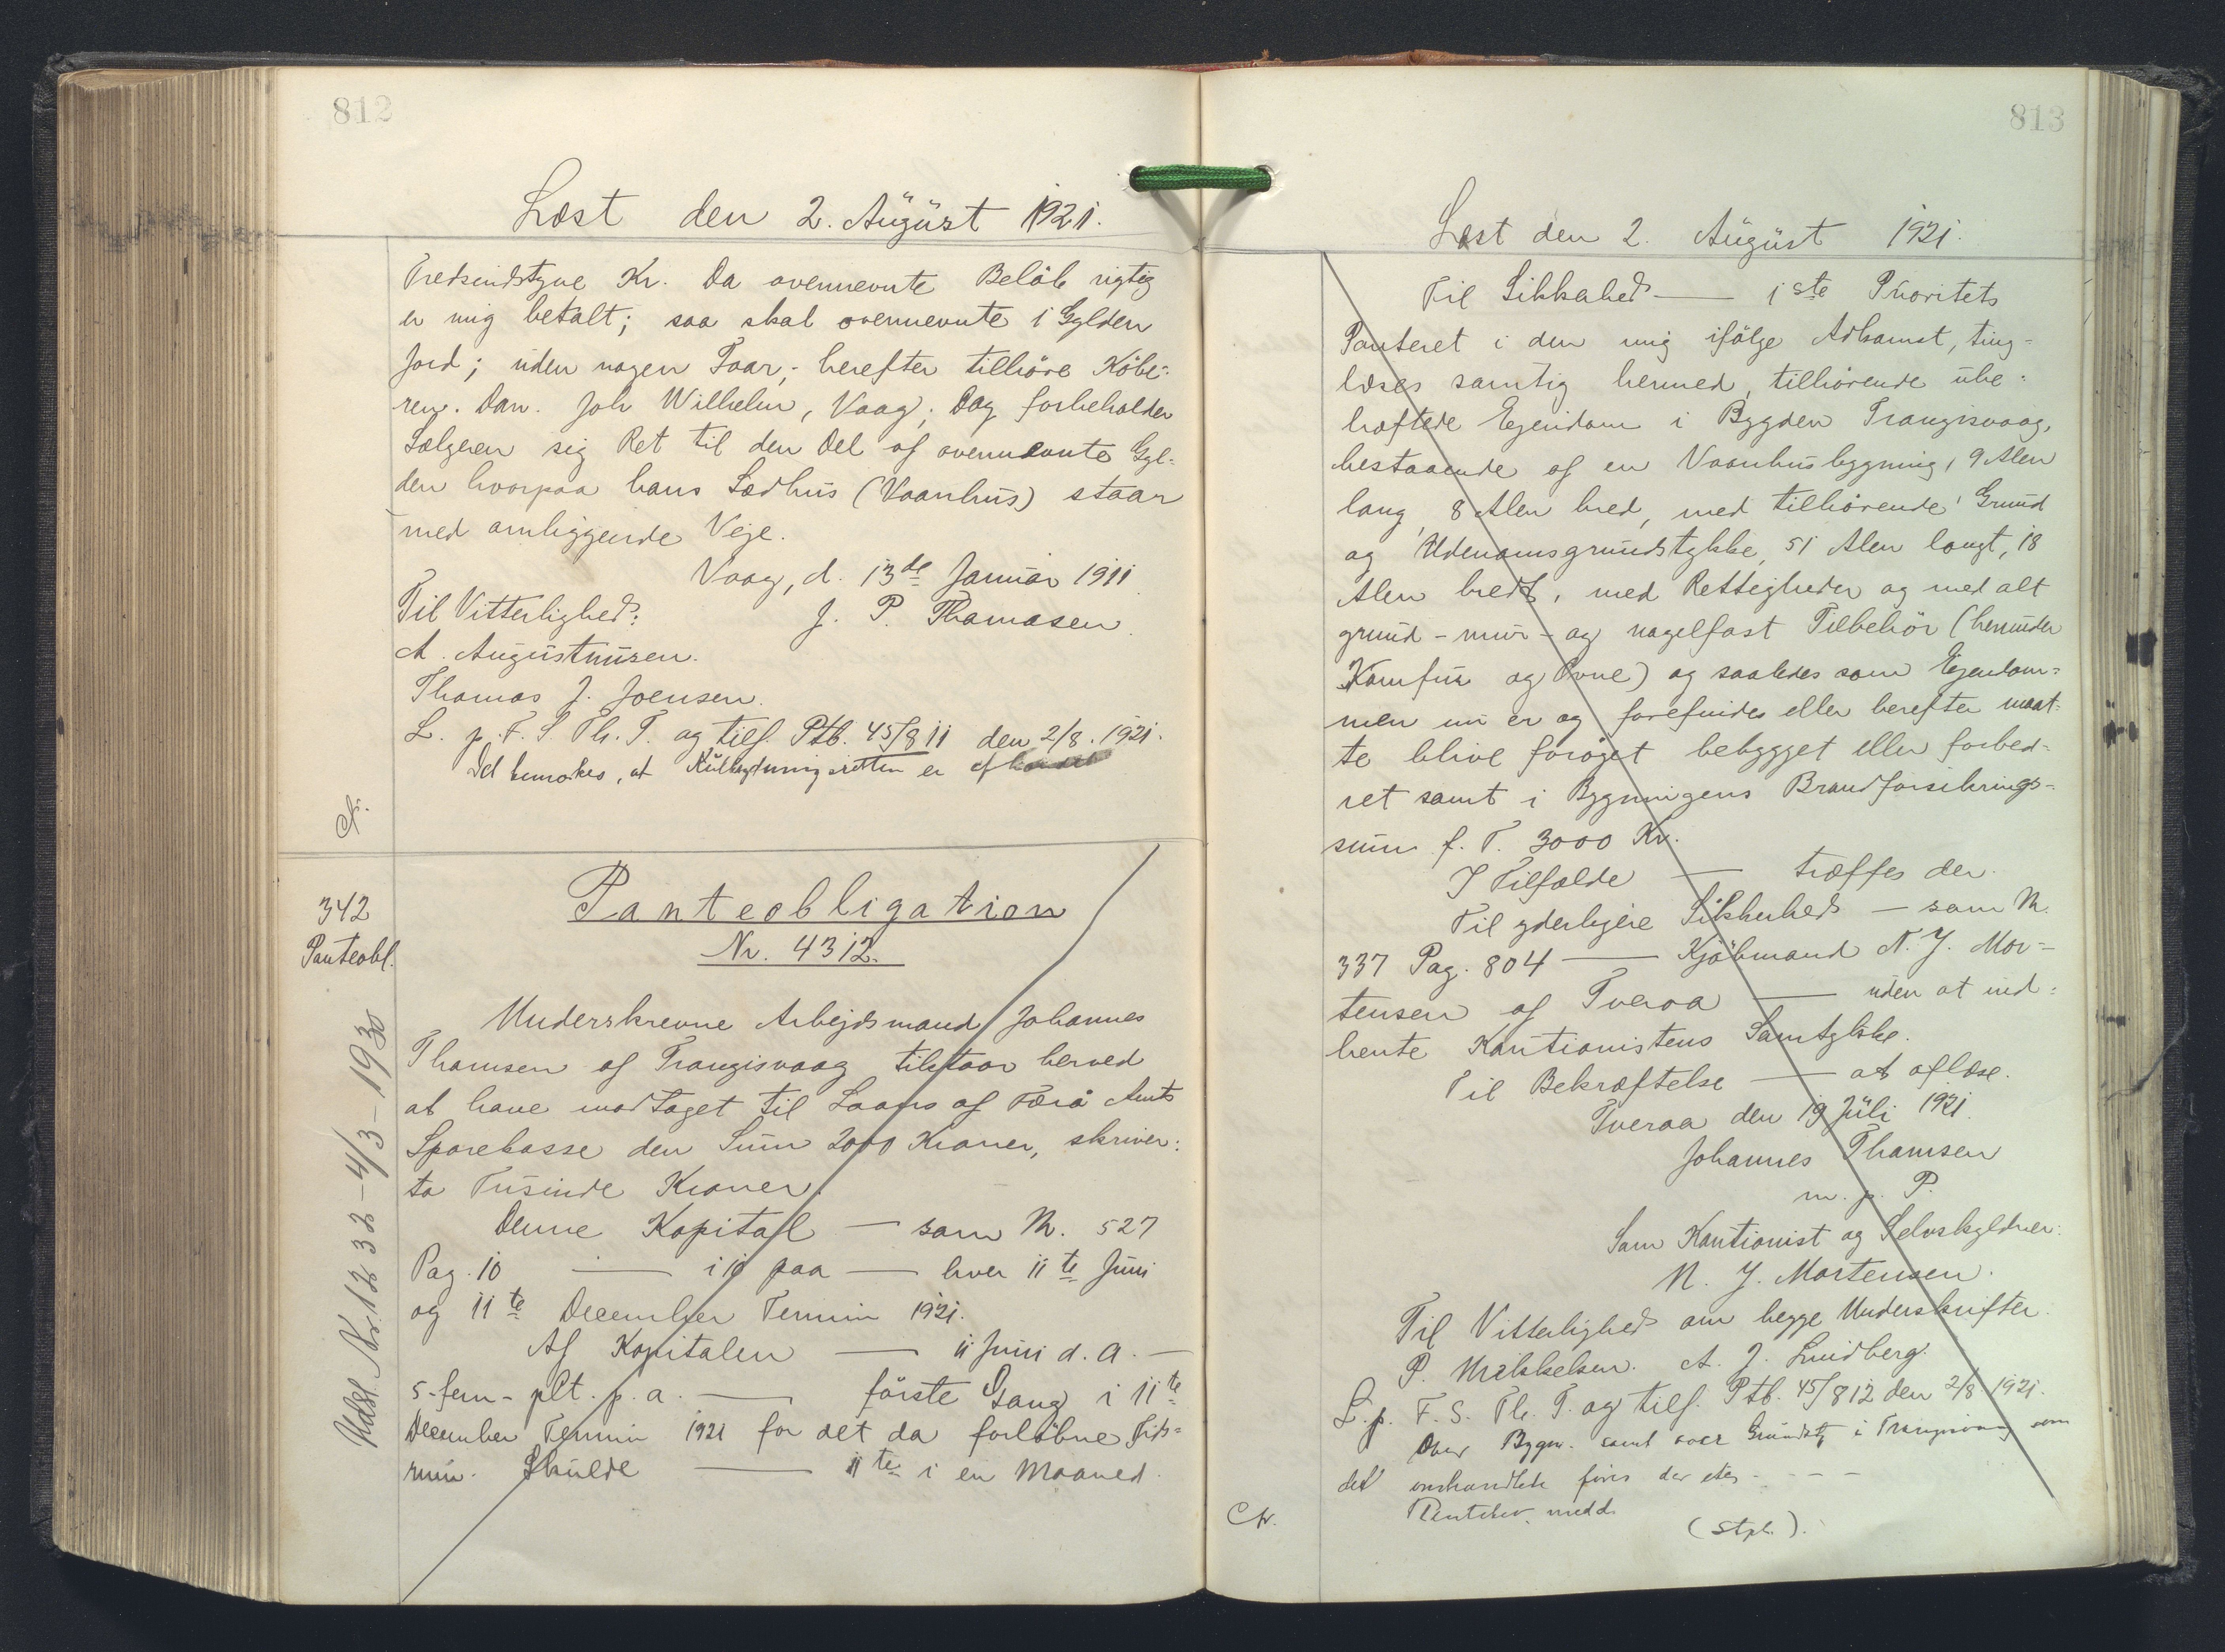 812
Læst den 2. August 1921.
Tredsindstyve Kr. Da ovennevnte Beløb rigtig
er mig betalt; saa skal ovennevnte 1 Gylden
Jord; uden nogen Faar,- herefter tilhøre Købe=
ren. Dan. Joh Wilhelm, Vaag. Dog forbeholder
Sælgeren sig Ret til den Del af ovennevnte Gyl=
den hvorpaa hans Sædhus (Vaanhus) staar
med omliggende Veje.
Vaag, d. 13de Januar 1911
Til Vitterlighed: J. P. Thomasen.
A. Augustinusen.
Thomas J. Joensen.
L. p. F. S. Th. T. og tilf. Ptb. 45/811 den 2/8. 1921.
Det bemærkes, at er
Cfr.
342
Panteobl.
Udsl. Nr. 1232 - 4/3 - 1930
Panteobligation
Nr. 4312.
Underskrevne Arbejdsmand Johannes
Thomsen af Trangisvaag tilstaar herved
at have modtaget til Laans af Færø Amts
Sparekasse den Sum 2000 Kroner, skriver:
to Tusinde Kroner.
Denne Kapital — som N. 527
Pag. 10 — i 10 paa — hver 11te Juni
og 11te December Termin 1921.
Af Kapitalen — 11 Juni d. A. —
5-fem- pCt. p. a. — første Gang i 11te
December Termin 1921 for det da forløbne Tids=
rum. Skulde — 11te i en Maaned.
813
Læst den 2. August 1921.
Til Sikkahed — 1ste Prioritets
Panteret i den mig ifølge Adkomst, ting=
læses samtig hermed, tilhørende ube=
hæftede Ejendom i Bygden Trangisvaag,
bestaaende af en Vaanhusbygning, 9 Alen
lang, 8 Alen bred, med tilhørende Grund
og Udenomsgrundstykke, 51 Alen langt, 18
Alen bredt, med Rettigheder og med alt
grund- mur- og nagelfast Tilbehør (herunder
Komfur og Ovne) og saaledes som Ejendom=
men nu er og forefindes eller herefter maat=
te blive forøget bebygget eller forbed=
ret samt i Bygningens Brandforsikrings=
sum f. T. 3000 Kr.
I Tilfælde — træffes der.
Til yderligere Sikkerhed — som N.
337 Pag. 804 — Kjøbmand N. J. Mor=
tensen af Tveraa — uden at ind=
hente Kautionistens Samtykke.
Til Bekræftelse — at aflæse.
Tveraa den 19 Juli 1921.
Johannes Thomsen
m. p. P.
Som Kautionist og Selvskyldner:
N. J. Mortensen.
Til Vitterlighed om begge Underskrifter.
P. Mikkelsen. A. J. Lundberg.
L. p. F. S. Th. T. og tilf. Ptb. 45/812 den 2/8 1921.
Over Bygn. samt over Grundst. i Trangisvaag som
det omhandlede der
Pantebev. medd.
(Stpl.).
Cfr.